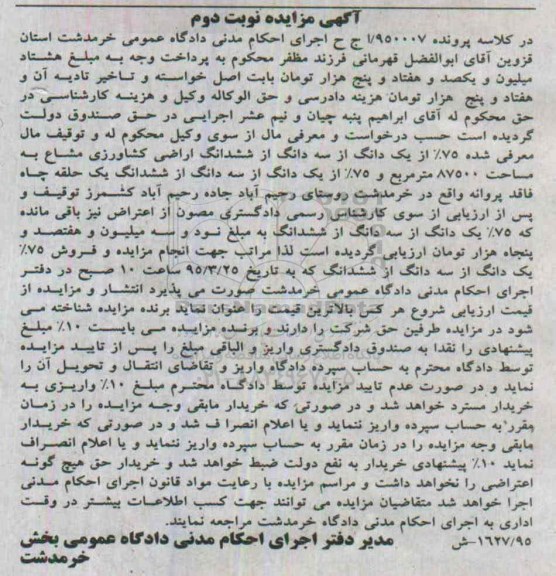 آگهی مزایده نوبت دوم
در کلاسه پرونده ۹۵۰۰۰۷/ا ج ح اجرای احکام مدنی دادگاه عمومی خرمدشت استان
قزوین آقای ابوالفضل قهرمانی فرزند مظفر محکوم به پرداخت وجه به مبلغ هشتاد
میلیون و یکصد و هفتاد و پنج هزار تومان بابت اصل خواسته و تاخیر تادیه آن و
هفتاد و پنج هزار تومان هزینه دادرسی و حق الوکاله وکیل و هزینه کارشناسی در
حق محکوم له آقای ابراهیم پنبه چیان و نیم عشر اجرایی در حق صندوق دولت
گردیده است حسب درخواست و معرفی مال از سوی وکیل محکوم له و توقیف مال
معرفی شده ۷۵٪ از یک دانگ از سه دانگ از ششدانگ اراضی کشاورزی مشاع به
مساحت ۸۷۵۰۰ مترمربع و ۷۵٪ از یک دانگ از سه دانگ از ششدانگ یک حلقه چاه
فاقد پروانه واقع در خرمدشت روستای رحیم آباد جاده رحیم آباد کشمرز توقیف و
پس از ارزیابی از سوی کارشناس رسمی دادگستری مصون از اعتراض نیز باقی مانده
که ۷۵٪ یک دانگ از سه دانگ از ششدانگ به مبلغ نود و سه میلیون و هفتصد و
پنجاه هزار تومان ارزیابی گردیده است لذا مراتب جهت انجام مزایده و فروش ۷۵٪
یک دانگ از سه دانگ از ششدانگ که به تاریخ ۹۵/۳/۲۵ ساعت ۱۰ صبح در دفتر
اجرای احکام مدنی دادگاه عمومی خرمدشت صورت می پذیرد انتشار و مزایده از
قیمت ارزیابی شروع هر کس بالاترین قیمت را عنوان نماید برنده مزایده شناخته می
شود در مزایده طرفین حق شرکت را دارند و برنده مزایده می بایست ۱۰٪ مبلغ
پیشنهادی را نقدا به صندوق دادگستری واریز و الباقی مبلغ را پس از تایید مزایده
توسط دادگاه محترم به حساب سپرده دادگاه واریز و تقاضای انتقال و تحویل آن را
نماید و در صورت عدم تایید مزایده توسط دادگاه محترم مبلغ ۱۰٪ واریزی به
خریدار مسترد خواهد شد و در صورتی که خریدار مابقی وجه مزایده را در زمان
مقرر به حساب سپرده واریز ننماید و یا اعلام انصراف شد و در صورتی که خریدار
مابقی وجه مزایده را در زمان مقرر به حساب سپرده واریز ننماید و یا اعلام انصراف
نماید ۱۰٪ پیشنهادی خریدار به نفع دولت ضبط خواهد شد و خریدار حق هیچ گونه
اعتراضی را نخواهد داشت و مراسم مزایده با رعایت مواد قانون اجرای احکام مدنی
اجرا خواهد شد متقاضیان مزایده می توانند جهت کسب اطلاعات بیشتر در وقت
اداری به اجرای احکام مدنی دادگاه خرمدشت مراجعه نمایند.
۱۶۲۷/۹۵-ش مدیر دفتر اجرای احکام مدنی دادگاه عمومی بخش
خرمدشت